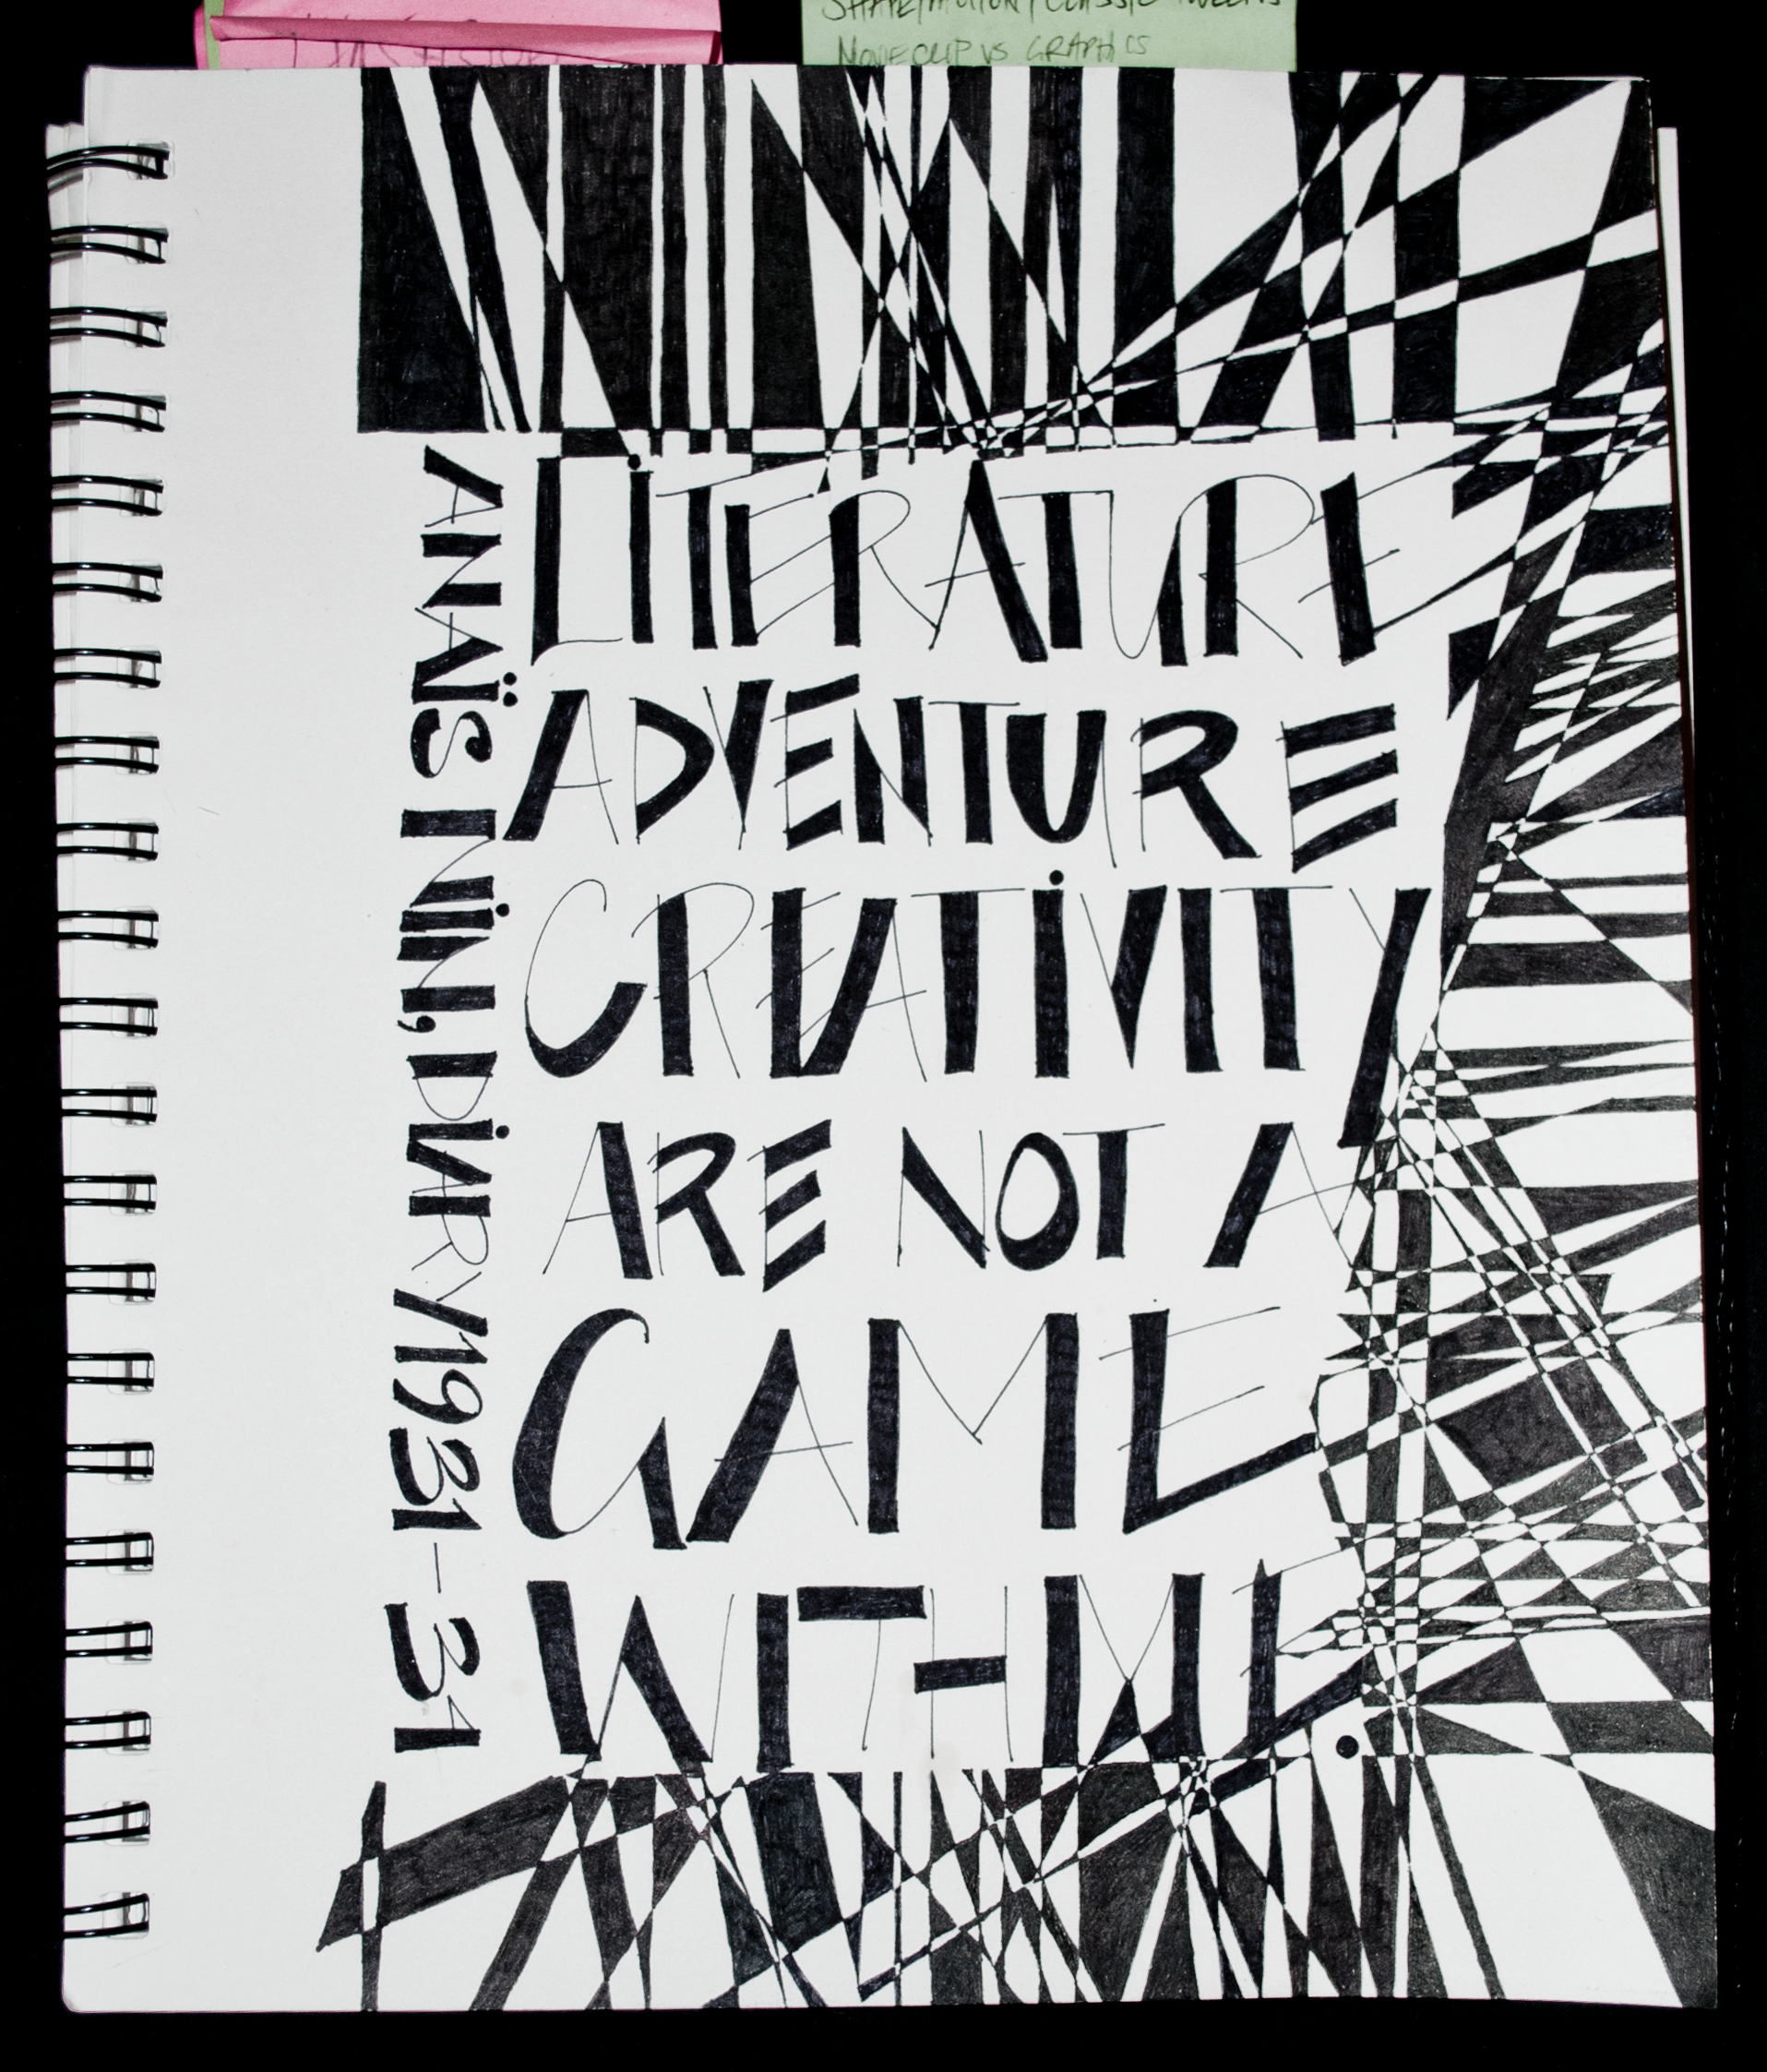 SHAPE/MOTION/CLASSIC TWEENS
MOVIECLIP VS GRAPHICS
LITERATURE
ADVENTURE
CREATIVITY
ARE NOT A
GAME
WITH ME.
ANAÏS NIN, DIARY 1931-34